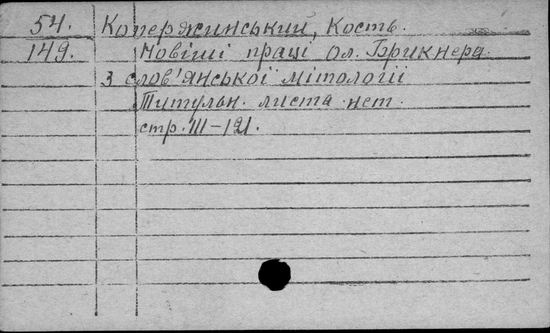 54. Копержинський, Кость.
149. Новіші праці Ол. Брикнера
з слов'янської мітології
Титульн. листа нет.
стр. 111-121.